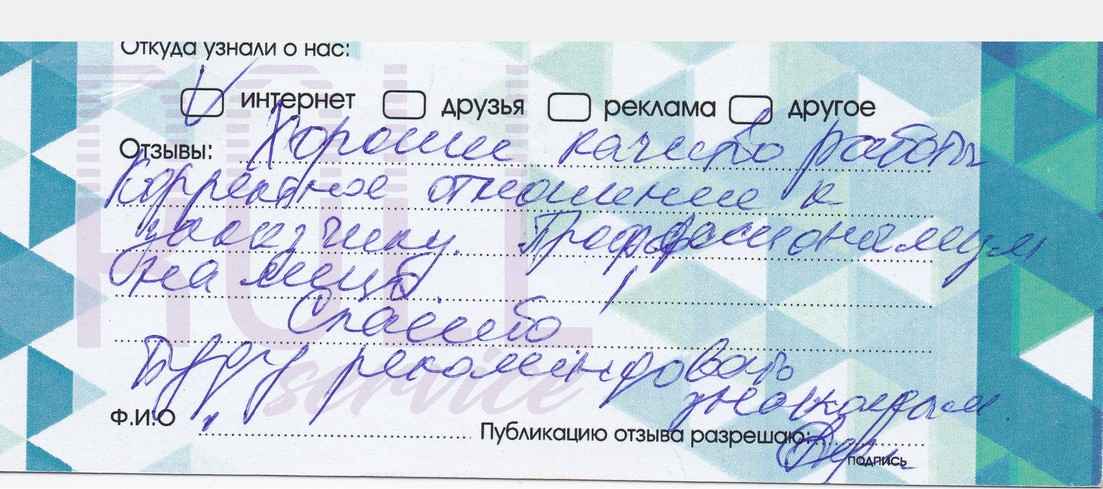 Откуда узнали о нас:
интернет друзья реклама другое
Отзывы: Хорошее качество работы
Корректное отношение к
заказчику. Профессионализм
на лицо.
Спасибо!
Буду рекомендовать
знакомым.
Ф.И.О Публикацию отзыва разрешаю:
подпись
ROLL
service